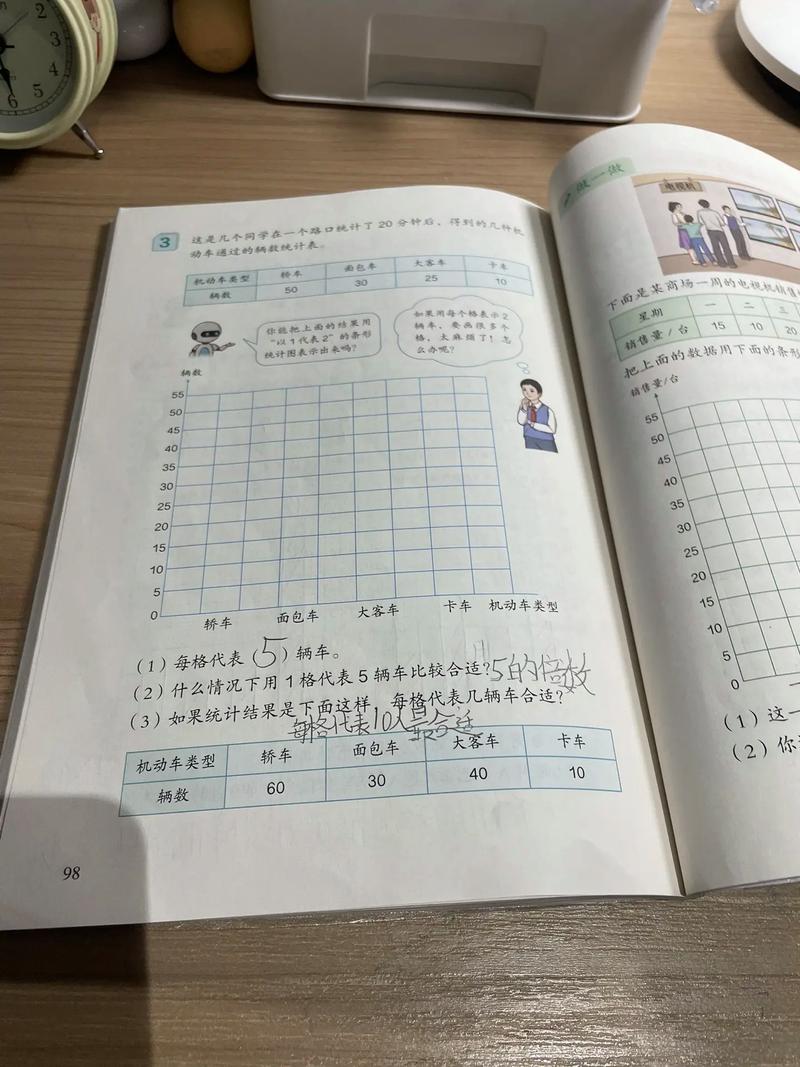 3 这是几个同学在一个路口统计了 20 分钟后，得到的几种机
动车通过的辆数统计表。
机动车类型 轿车 面包车 大客车 卡车
辆数 50 30 25 10
你能把上面的结果用
“以 1 代表 2”的条形
统计图表示出来吗？
如果用每个格表示 2
辆车，要画很多个
格，太麻烦了！怎
么办呢？
辆数
55
50
45
40
35
30
25
20
15
10
5
0
轿车 面包车 大客车 卡车 机动车类型
（1）每格代表（5）辆车。
（2）什么情况下用 1 格代表 5 辆车比较合适？5的倍数
（3）如果统计结果是下面这样，每格代表几辆车合适？
每格代表10
较合适
机动车类型 轿车 面包车 大客车 卡车
辆数 60 30 40 10
98
做一做
电视机
下面是某商场一周的电视机销售
星期 一 二 三
销售量/台 15 10 20
把上面的数据用下面的条形
销售量/台
55
50
45
40
35
30
25
20
15
10
5
0
（1）这一
（2）你
2
3
4
5
6